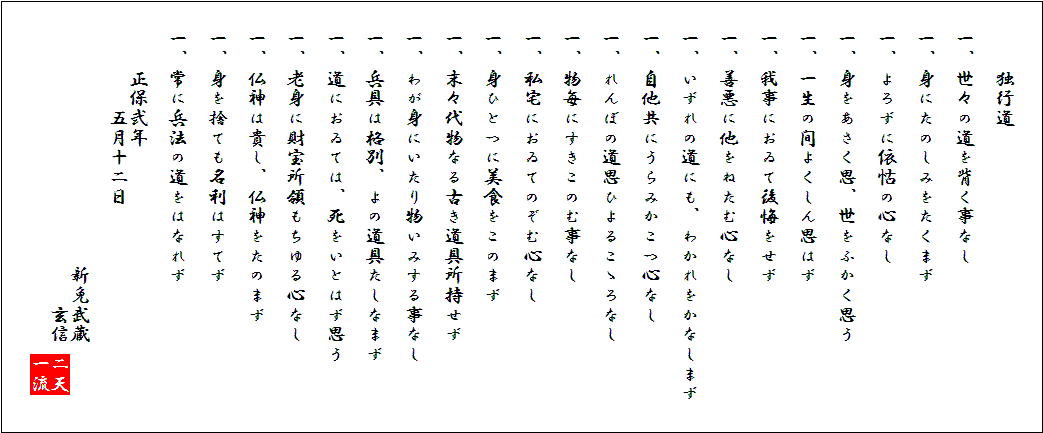 独行道
一、世々の道を背く事なし
一、身にたのしみをたくまず
一、よろずに依怙の心なし
一、身をあさく思、世をふかく思う
一、一生の間よくしん思はず
一、我事におゐて後悔をせず
一、善悪に他をねたむ心なし
一、いずれの道にも、わかれをかなしまず
一、自他共にうらみかこつ心なし
一、れんぼの道思ひよるこゝろなし
一、物毎にすきこのむ事なし
一、私宅におゐてのぞむ心なし
一、身ひとつに美食をこのまず
一、末々代物なる古き道具所持せず
一、わが身にいたり物いみする事なし
一、兵具は格別、よの道具たしなまず
一、道におゐては、死をいとはず思う
一、老身に財宝所領もちゆる心なし
一、仏神は貴し、仏神をたのまず
一、身を捨ても名利はすてず
一、常に兵法の道をはなれず
正保弐年
五月十二日
新免武蔵
玄信
二天
一流